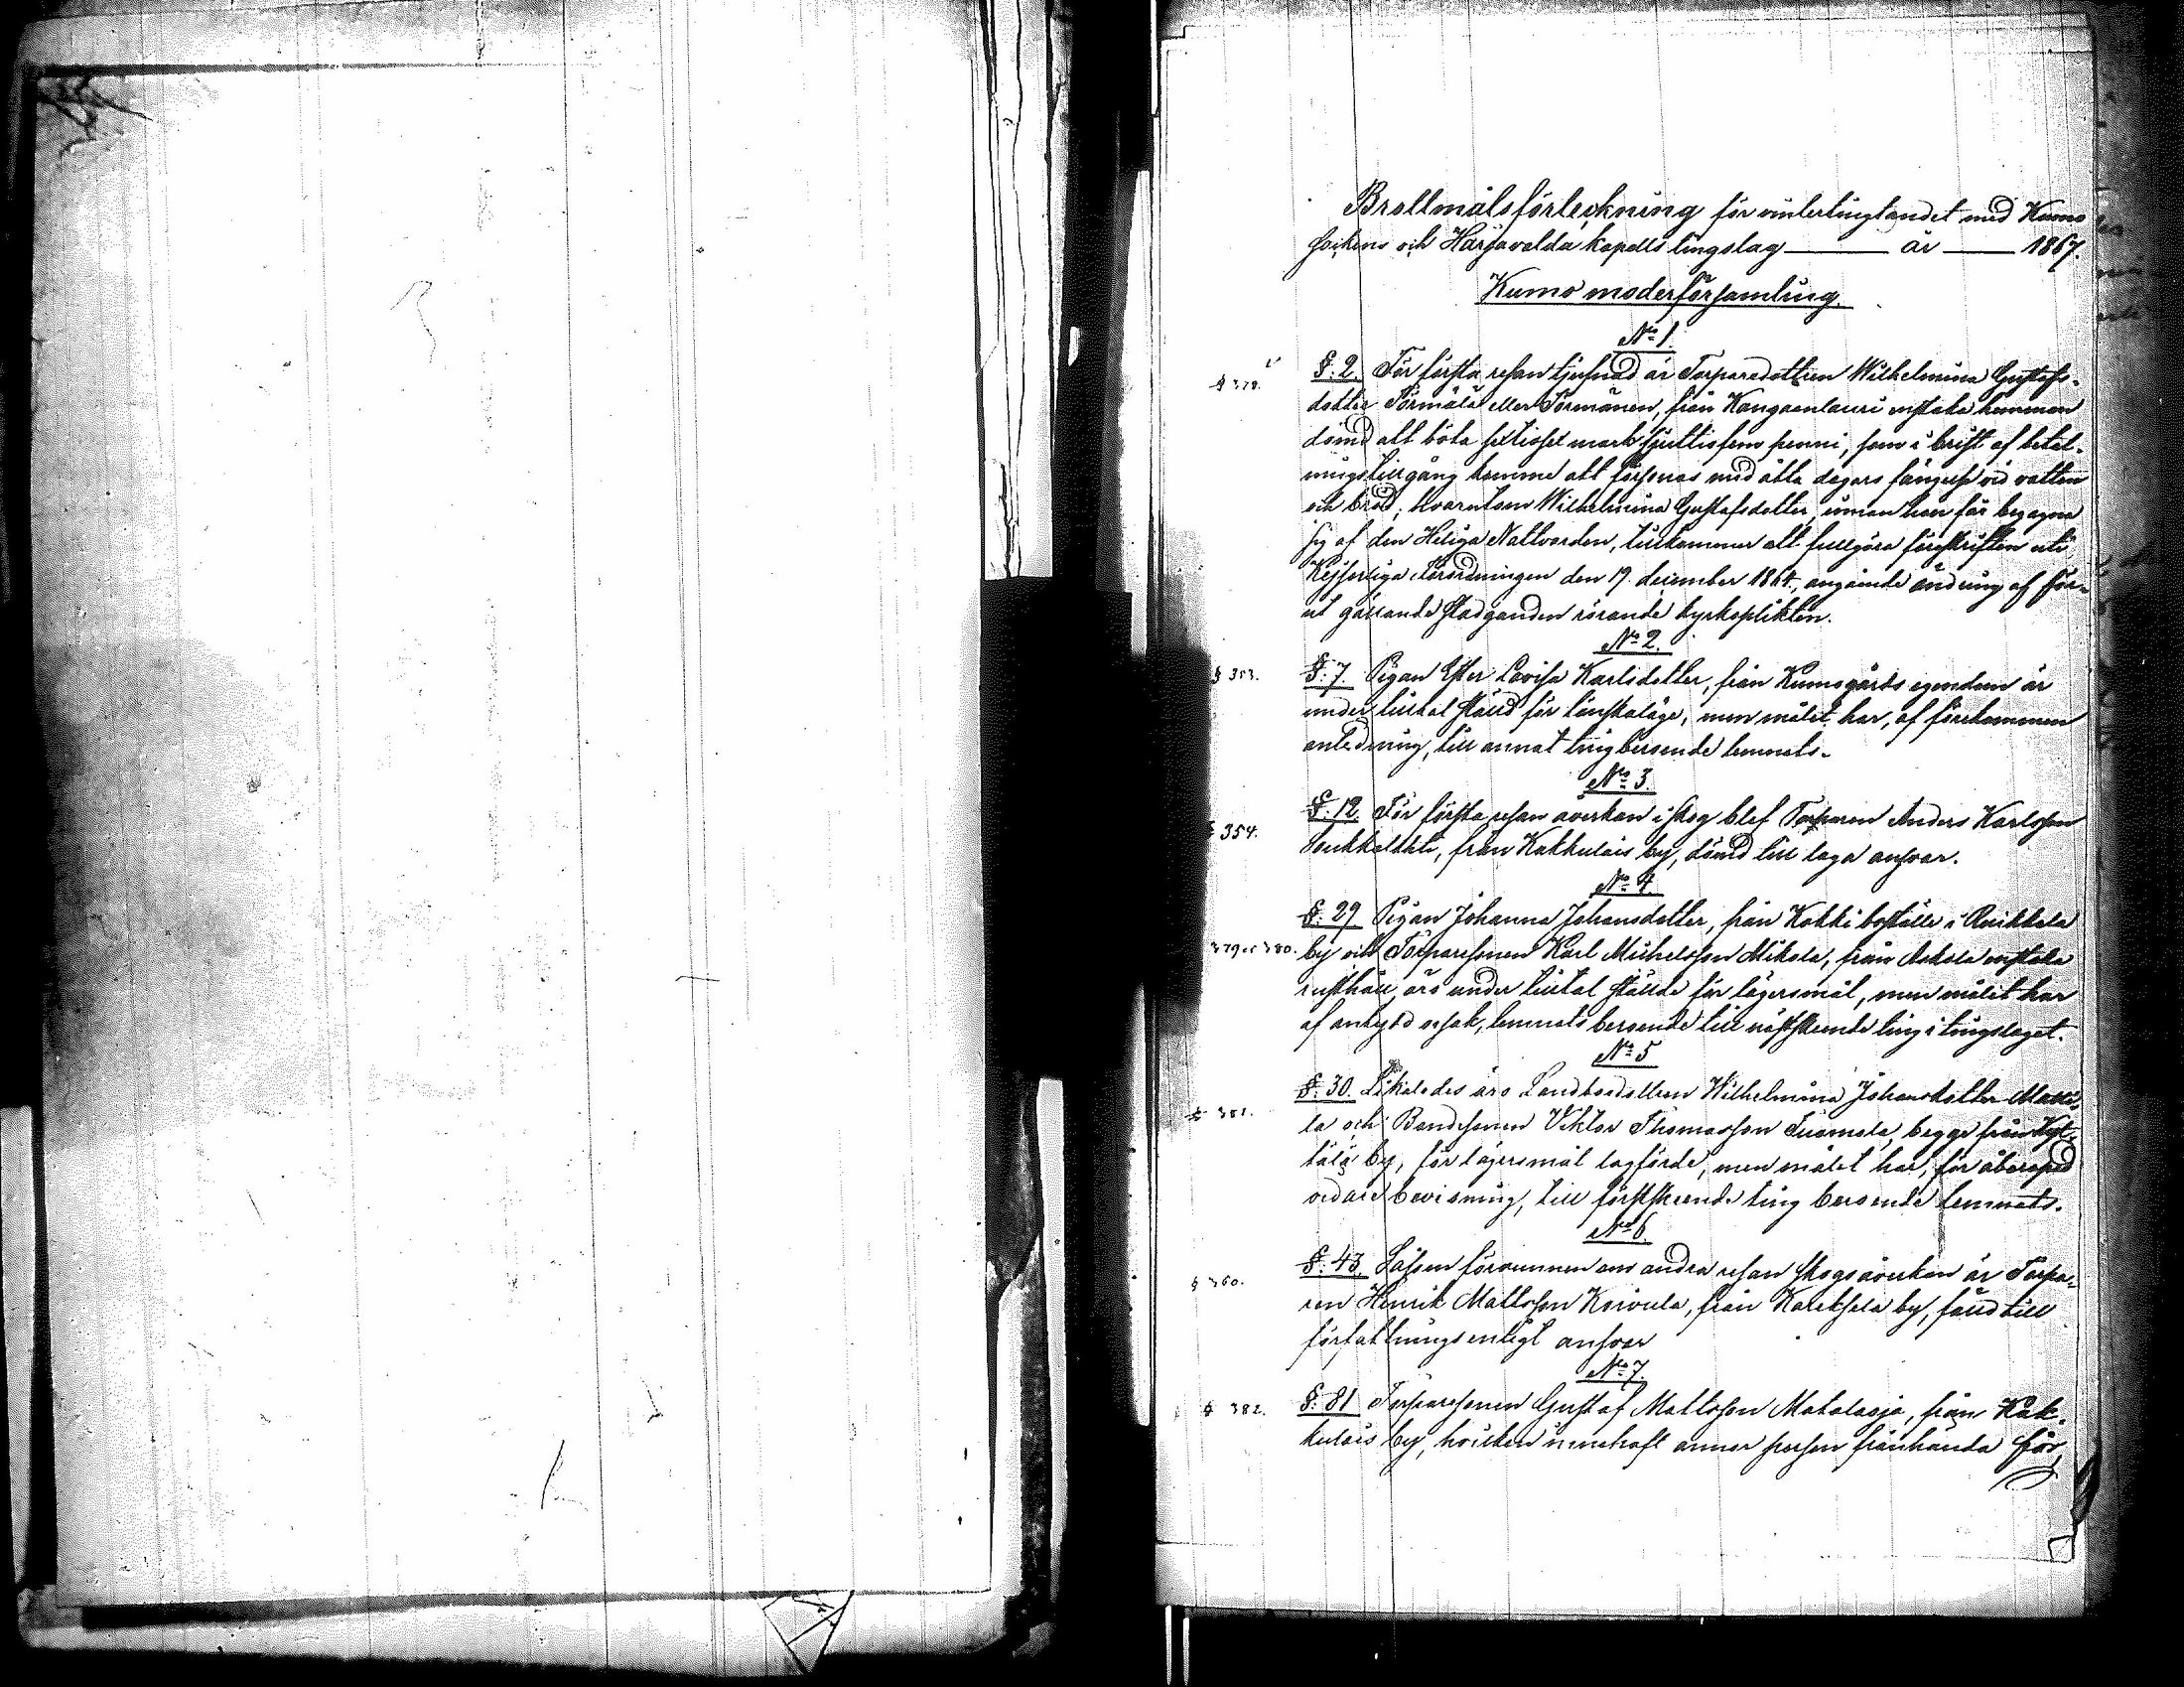 Brottmålsförteckning för vintertingtandet med Kumo
sockens och Harjavalda kapells tingslag — år — 1867.
Kumo moderförsamling.
No 1.
§ 378. §. 2. För första resan tjufnad är Torparedottren Wilhelmina Gustafs-
dotter Törmälä eller Törmänen, från Kangaanlauri enstaka hemman
dömd att böta sextiosex mark sjuttiofem penni, som i brist af betal-
ningstillgång komme att försonas med åtta dagars fängelse vid vatten
och bröd; hvarutom Wilhelmina Gustafsdotter, innan hon får begagna
sig af den Heliga Nattvarden, tillkommer att fullgöra föreskriften uti
Kejserliga Förordningen den 19 december 1864, angående ändring af för-
ut gällande stadganden rörande kyrkoplikten.
No 2.
§ 353. §. 7. Pigan Ester Lovisa Karlsdotter, från Kumogårds egendom är
under tilltal ställd för lönskaläge, men målet har, af förekommen
anledning, till annat ting beroende lemnats.
No 3.
§ 354. §. 12. För första resan åverkan i skog blef Torparen Anders Karlsson
från Kakkulais by, dömd till laga ansvar.
No 4.
§. 29. Pigan Johanna Johansdotter, från Kokki boställe i Ruikkala
379 o 380. by och Torparesonen Karl Michelsson Mikola, från Askola enstaka
rusthåll äro under tilltal ställde för lägersmål, men målet har
af antydd orsak, lemnats beroende till nästskeende ting i tingslaget.
No 5
§. 30. Likaledes äro Landbodottren Wilhelmina Johansdotter Matti-
§ 381. la och Bondesonen Viktor Thomasson Tuomola, begge från Kyt-
tälä by, för lägersmål lagförde, men målet har, för åberopad
vidare bevisning, till förstskeende ting beroende lemnats.
No 6.
§. 43. Såsom förvunnen om andra resan skogsåverkan är Torpa-
§ 360. ren Henrik Mattsson Koivula, från Kareksela by, fälld till
författningsenligt ansvar
No 7.
§ 382. §. 81 Torparesonen Gustaf Mattsson Matalaoja, från Kak-
kulais by, hvilken innehaft annor person frånhända för,